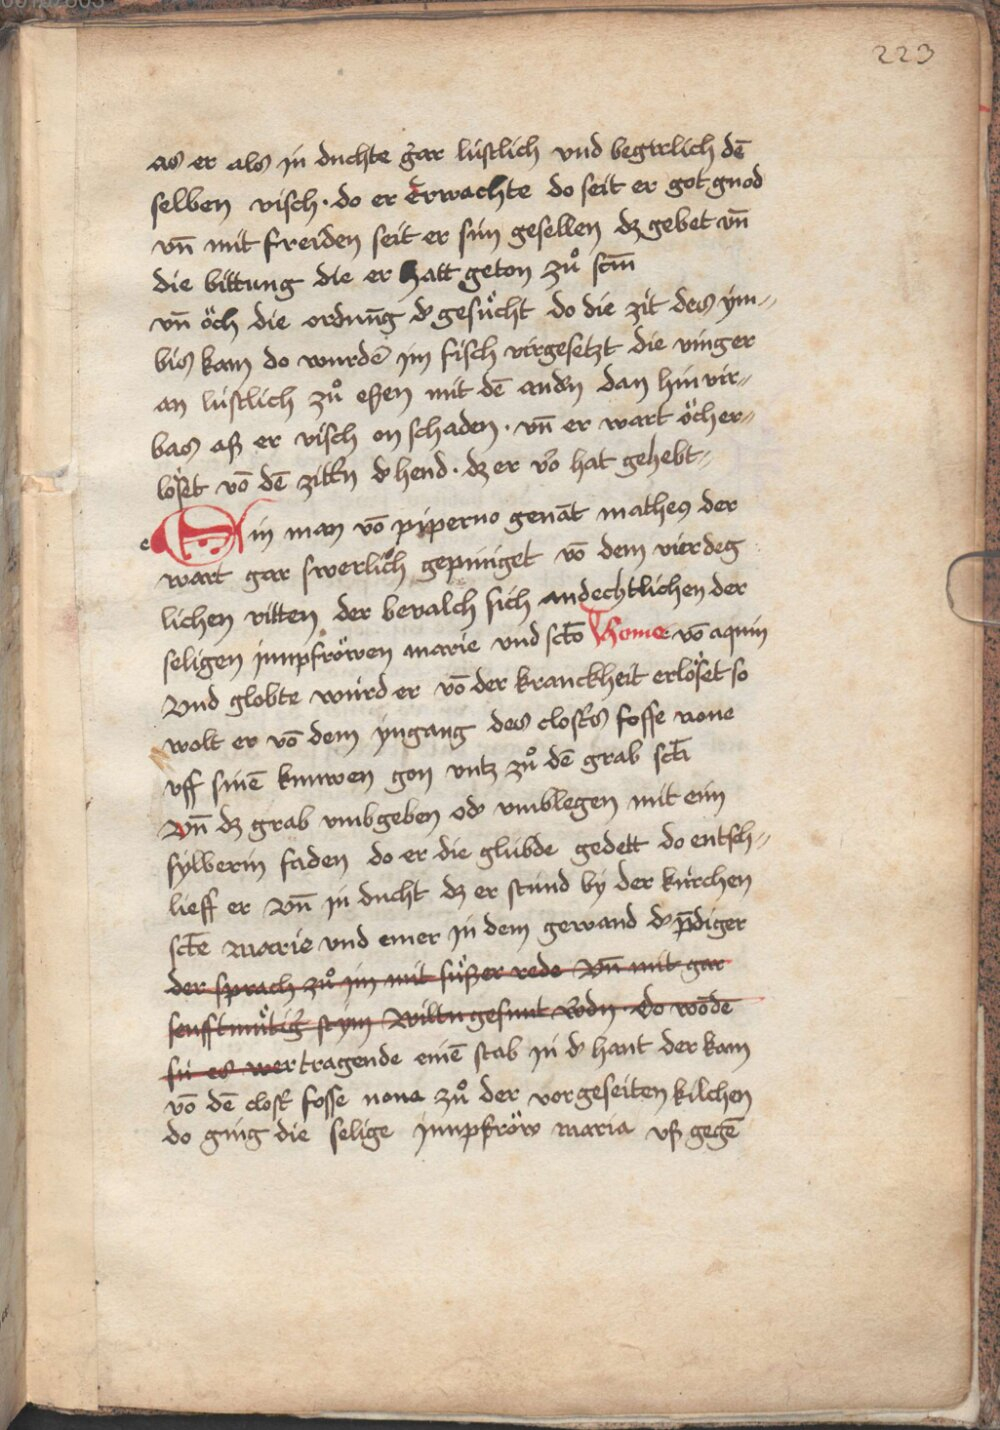 223
as er als in duchte gar lüstlich vnd begirlich dē
selben visch · do er Erwachte do seit er got gnod
vn̄ mit freiden seit er sin gesellen dz gebet vn̄
die bittung die er hatt geton zů sctm̄
vn̄ öch die ordnūg d' gesücht do die zit des ym-
bis kam do wurdē im fisch virgesetzt die vinger
an lüstlich zů eßen mit dē andn̄ dan hin vir-
bas aß er visch on schaden · vn̄ er wart öch er-
löset vō dē zittn̄ d' hend · dz er vō hat gehebt-
e Ein man vō piperno genāt matheus der
wart gar swerlich gepiniget vō dem vierdeg
lichen ritten der bevalch sich andechtlichen der
seligen junpfröwen marie vnd sctō Thome vō aquin
Vnd globte würd er vō der kranckheit erlöset so
wolt er vō dem yngang des closters fosse none
vff sinē knuwen gon vntz zů dē grab sctī
Vn̄ dz grab vmbgeben od' vmblegen mit eim
sylberin faden do er die glübde gedett do entsch-
lieff er Vn̄ in ducht dz er stund by der kirchen
sctē Marie vnd einer in dem gewand d' p̄diger
der sprach zů im mit süßer rede Vn̄ mit gar
senfftmütig' stym Wiltu gesunt w'dn · do wōdē
sü es wer tragende einē stab in d' hant der kam
vō dē clost' fosse nona zů der vorgeseiten kilchen
do ging die selige junpfröw maria vß gegē